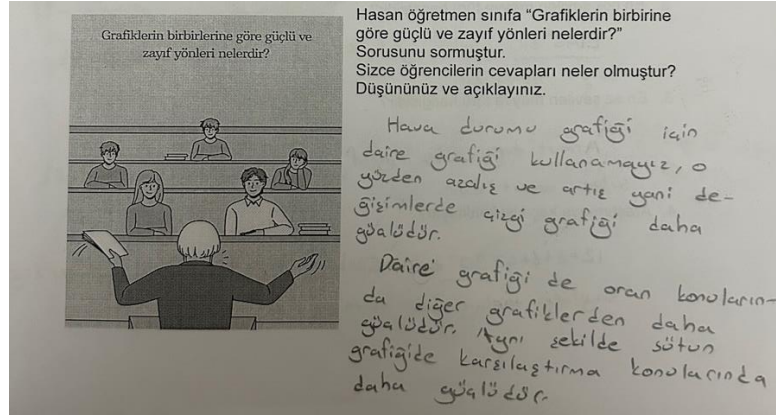 Grafiklerin birbirlerine göre güçlü ve
zayıf yönleri nelerdir?
Hasan öğretmen sınıfa “Grafiklerin birbirine
göre güçlü ve zayıf yönleri nelerdir?”
Sorusunu sormuştur.
Sizce öğrencilerin cevapları neler olmuştur?
Düşününüz ve açıklayınız.
Hava durumu grafiği için
daire grafiği kullanamayız, o
yüzden azalış ve artış yani de-
ğişimlerde çizgi grafiği daha
güçlüdür.
Daire grafiği de oran konuların-
da diğer grafiklerden daha
güçlüdür. Aynı şekilde sütun
grafiğide karşılaştırma konularında
daha güçlüdür.